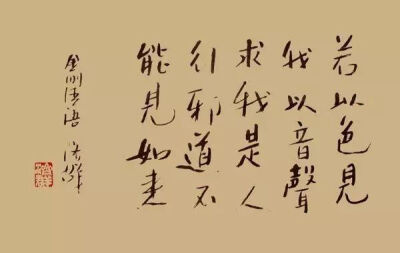 若以色見
我以音聲
求我是人
行邪道不
能見如来
金刚法语